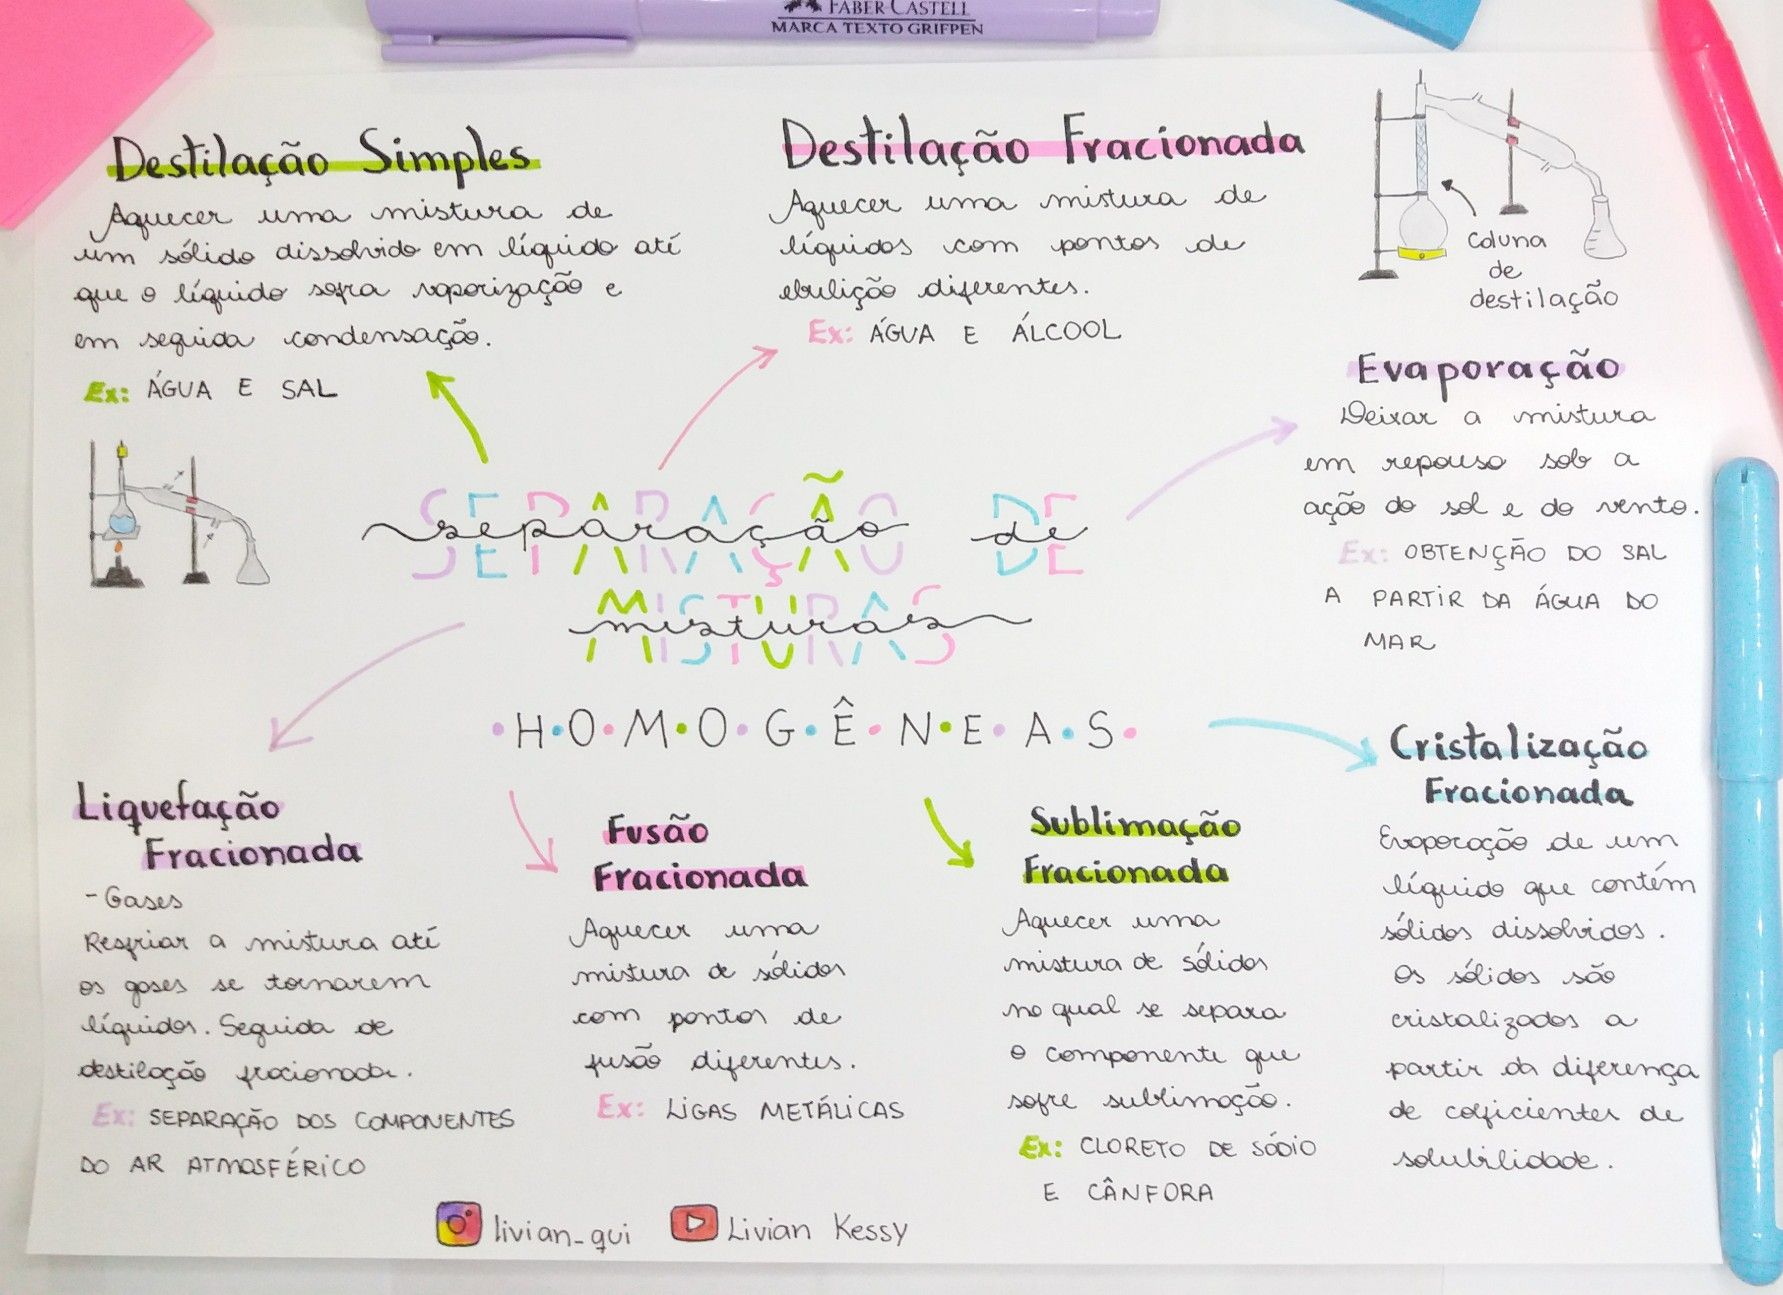 FABER-CASTELL
MARCA TEXTO GRIFPEN
Destilação Simples
Aquecer uma mistura de
um sólido dissolvido em líquido até
que o líquido sofra vaporização e
em seguida condensação.
Ex: ÁGUA E SAL
Destilação Fracionada
Aquecer uma mistura de
líquidos com pontos de
ebulição diferentes.
Ex: ÁGUA E ÁLCOOL
Coluna
de
destilação
Evaporação
Deixar a mistura
em repouso sob a
ação do sol e do vento.
Ex: OBTENÇÃO DO SAL
A PARTIR DA ÁGUA DO
MAR
SEPARAÇÃO DE
separação de
MISTURAS
misturas
•H•O•M•O•G•Ê•N•E•A•S•
Liquefação
Fracionada
- Gases
Resfriar a mistura até
os gases se tornarem
líquidos. Seguida de
destilação fracionada.
Ex: SEPARAÇÃO DOS COMPONENTES
DO AR ATMOSFÉRICO
Fusão
Fracionada
Aquecer uma
mistura de sólidos
com pontos de
fusão diferentes.
Ex: LIGAS METÁLICAS
Sublimação
Fracionada
Aquecer uma
mistura de sólidos
no qual se separa
o componente que
sofre sublimação.
Ex: CLORETO DE SÓDIO
E CÂNFORA
Cristalização
Fracionada
Evaporação de um
líquido que contém
sólidos dissolvidos.
Os sólidos são
cristalizados a
partir da diferença
de coeficientes de
solubilidade.
livian_gui
Livian Kessy